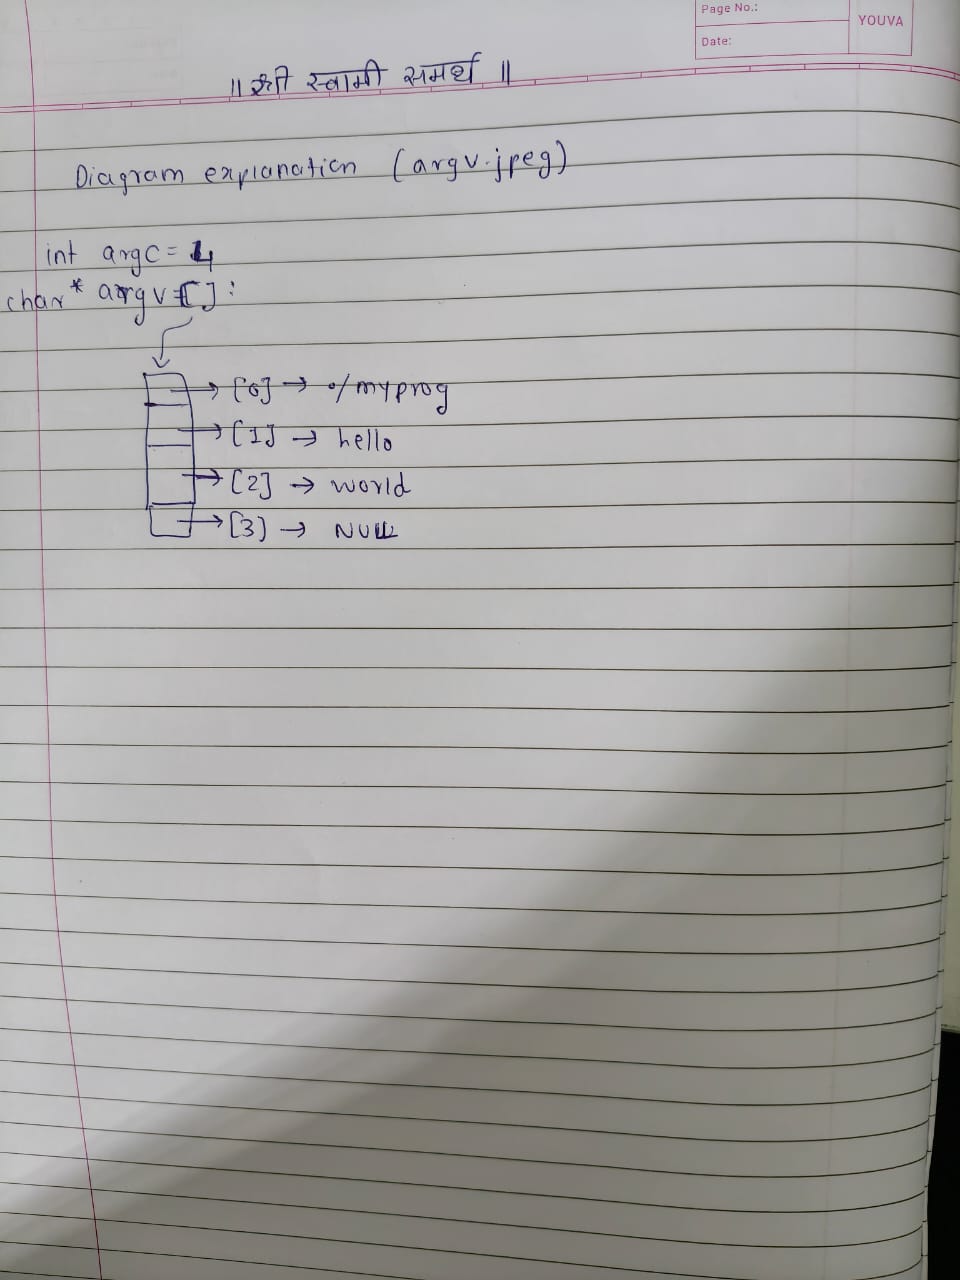 Page No.:
YOUVA
Date:
॥ श्री स्वामी समर्थ ॥
Diagram explanation (argv.jpeg)
int argc = 4
char* argv[]:
[0] → ./myprog
[1] → hello
[2] → world
[3] → NULL